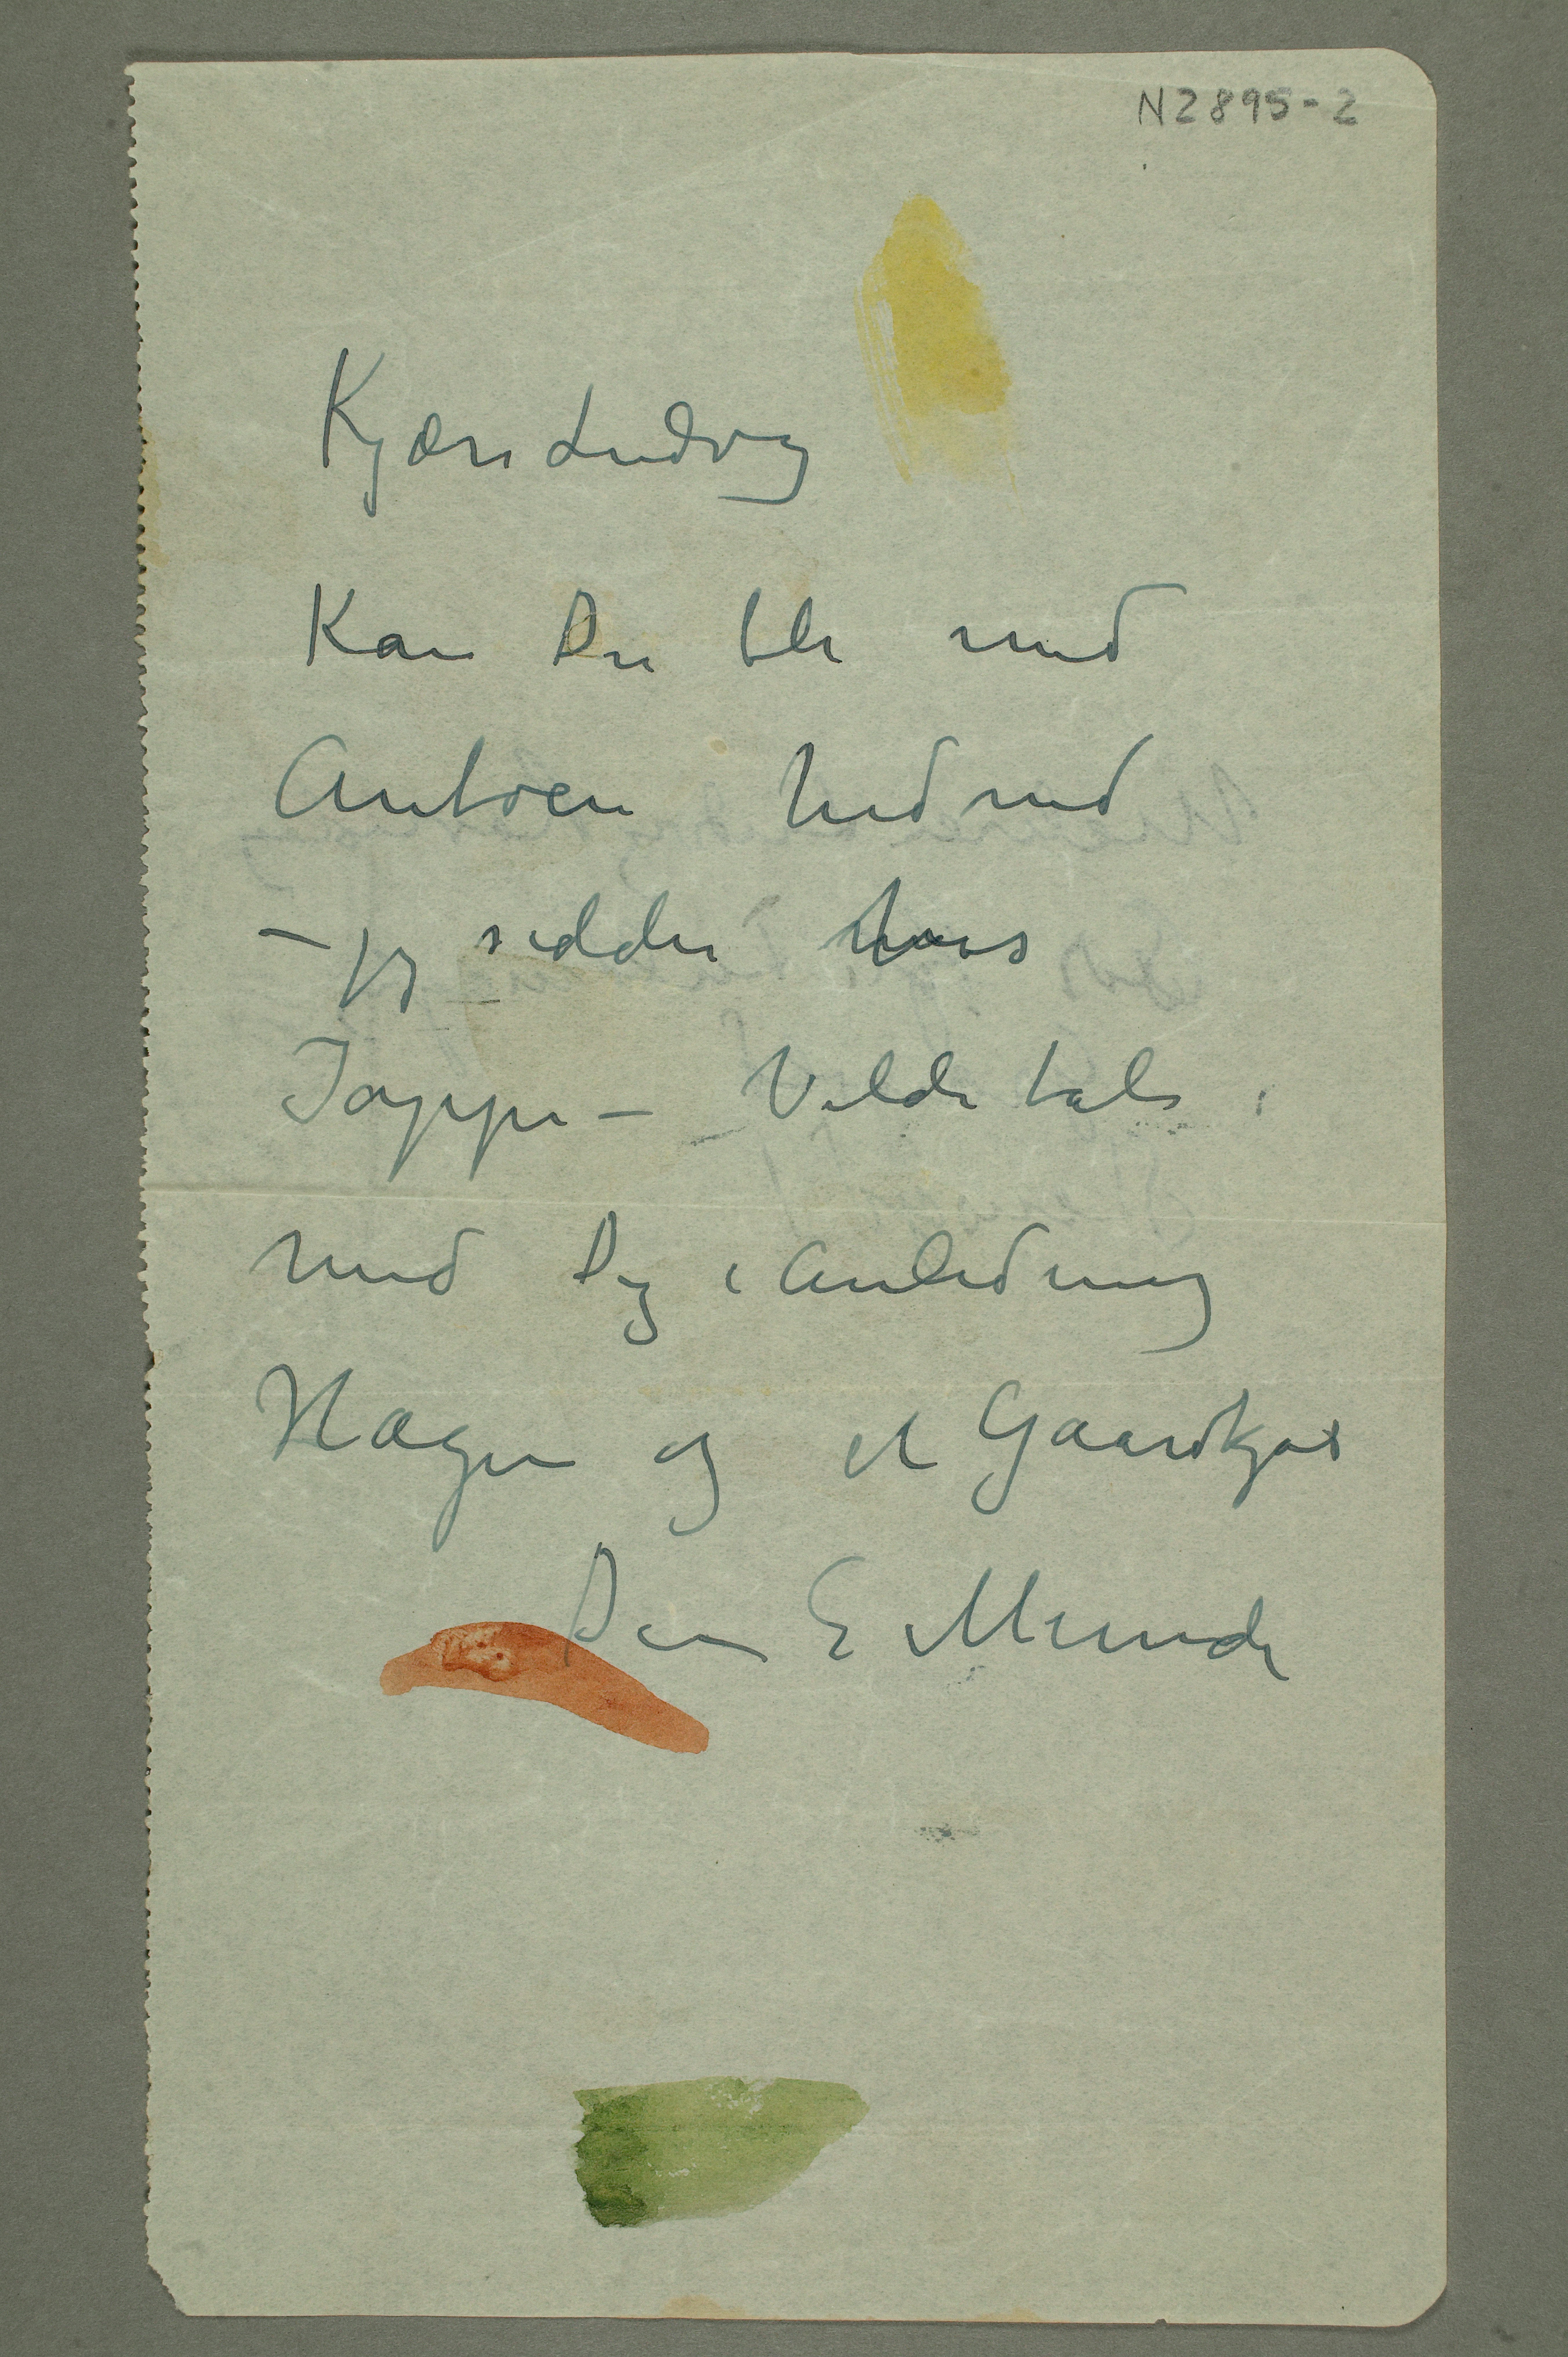 N2895-2
Kjære Ludvig
Kan Du bli med
Antoen hid ned
– jeg sidder hos
Jappe – Vilde tale
med Dig i Anledning
Hagen og et Gaardkjøb
Din E Munch